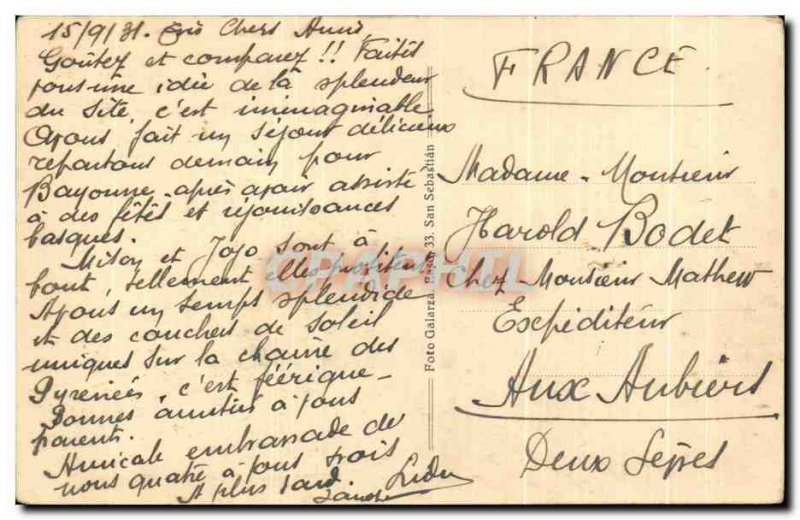 15/9/31. Très Chers Amis
Goûtez et comparez !! Faites
vous une idée de la splendeur
du site, c'est inimaginable
Avons fait un séjour délicieux
repartons demain pour
Bayonne après avoir assisté
à des fêtes et réjouissances
basques.
Misoy et Jojo sont à
bout, tellement elles profitent
Avons un temps splendide
et des couchers de soleil
uniques sur la chaîne des
Pyrénées, c'est féérique
Bonnes amitiés à vous
parents.
Amicale embrassade de
nous quatre à vous trois
A plus tard.
Foto Galarza, 33, San Sebastián
FRANCE
Madame - Monsieur
Harold Bodet
chez Monsieur Mathew
Expéditeur
Aux Aubiers
Deux Sèvres